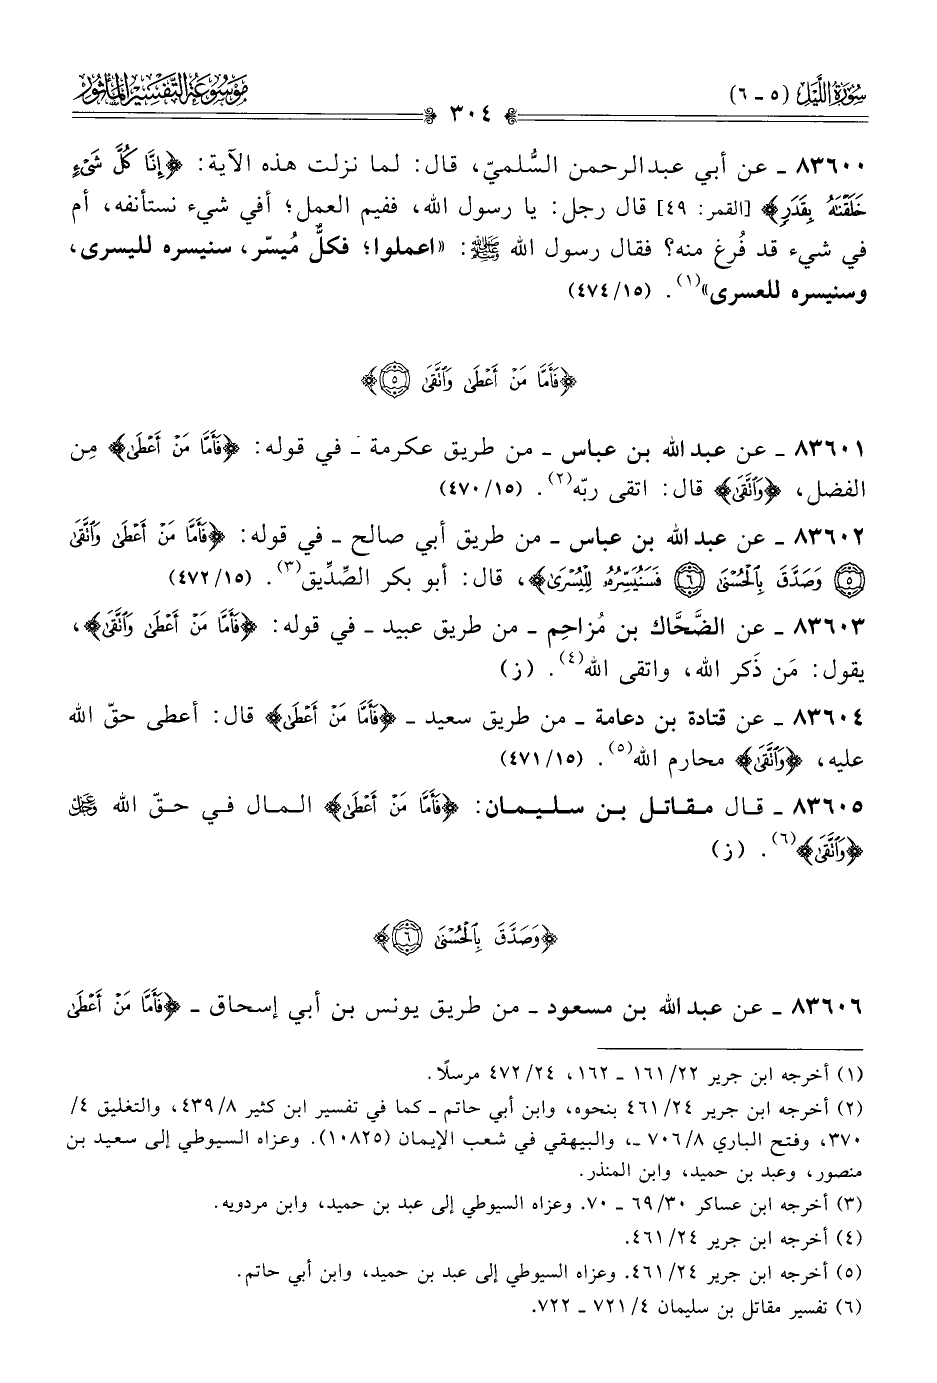 سُورَةُ اللَّيْل (٥ - ٦)
٣٠٤
مَوْسُوعَةُ التَّفْسِيرِ المَأْثُور
٨٣٦٠٠ ـ عن أبي عبدالرحمن السُّلميّ، قال: لما نزلت هذه الآية: ﴿إِنَّا كُلَّ شَىْءٍ
خَلَقْنَٰهُ بِقَدَرٍ﴾ [القمر: ٤٩] قال رجل: يا رسول الله، ففيم العمل؛ أفي شيء نستأنفه، أم
في شيء قد فُرغ منه؟ فقال رسول الله ﷺ: «اعملوا؛ فكلٌّ مُيسّر، سنيسره لليسرى،
وسنيسره للعسرى»(١). (٤٧٤/١٥)
﴿فَأَمَّا مَنْ أَعْطَىٰ وَٱتَّقَىٰ ٥﴾
٨٣٦٠١ ـ عن عبدالله بن عباس ـ من طريق عكرمة ـ في قوله: ﴿فَأَمَّا مَنْ أَعْطَىٰ﴾ مِن
الفضل، ﴿وَٱتَّقَىٰ﴾ قال: اتقى ربّه(٢). (٤٧٠/١٥)
٨٣٦٠٢ ـ عن عبدالله بن عباس ـ من طريق أبي صالح ـ في قوله: ﴿فَأَمَّا مَنْ أَعْطَىٰ وَٱتَّقَىٰ
٥ وَصَدَّقَ بِٱلْحُسْنَىٰ ٦ فَسَنُيَسِّرُهُۥ لِلْيُسْرَىٰ﴾، قال: أبو بكر الصِّدِّيق(٣). (٤٧٢/١٥)
٨٣٦٠٣ ـ عن الضَّحَّاك بن مُزاحِم ـ من طريق عبيد ـ في قوله: ﴿فَأَمَّا مَنْ أَعْطَىٰ وَٱتَّقَىٰ﴾،
يقول: مَن ذَكر الله، واتقى الله(٤). (ز)
٨٣٦٠٤ ـ عن قتادة بن دعامة ـ من طريق سعيد ـ ﴿فَأَمَّا مَنْ أَعْطَىٰ﴾ قال: أعطى حقّ الله
عليه، ﴿وَٱتَّقَىٰ﴾ محارم الله(٥). (٤٧١/١٥)
٨٣٦٠٥ ـ قال مقاتل بن سليمان: ﴿فَأَمَّا مَنْ أَعْطَىٰ﴾ المال في حقّ الله عزوجل
﴿وَٱتَّقَىٰ﴾(٦). (ز)
﴿وَصَدَّقَ بِٱلْحُسْنَىٰ ٦﴾
٨٣٦٠٦ ـ عن عبدالله بن مسعود ـ من طريق يونس بن أبي إسحاق ـ ﴿فَأَمَّا مَنْ أَعْطَىٰ
(١) أخرجه ابن جرير ١٦١/٢٢ ـ ١٦٢، ٤٧٢/٢٤ مرسلًا.
(٢) أخرجه ابن جرير ٤٦١/٢٤ بنحوه، وابن أبي حاتم ـ كما في تفسير ابن كثير ٤٣٩/٨، والتغليق ٤/
٣٧٠، وفتح الباري ٧٠٦/٨ ـ، والبيهقي في شعب الإيمان (١٠٨٢٥). وعزاه السيوطي إلى سعيد بن
منصور، وعبد بن حميد، وابن المنذر.
(٣) أخرجه ابن عساكر ٦٩/٣٠ ـ ٧٠. وعزاه السيوطي إلى عبد بن حميد، وابن مردويه.
(٤) أخرجه ابن جرير ٤٦١/٢٤.
(٥) أخرجه ابن جرير ٤٦١/٢٤. وعزاه السيوطي إلى عبد بن حميد، وابن أبي حاتم.
(٦) تفسير مقاتل بن سليمان ٧٢١/٤ ـ ٧٢٢.